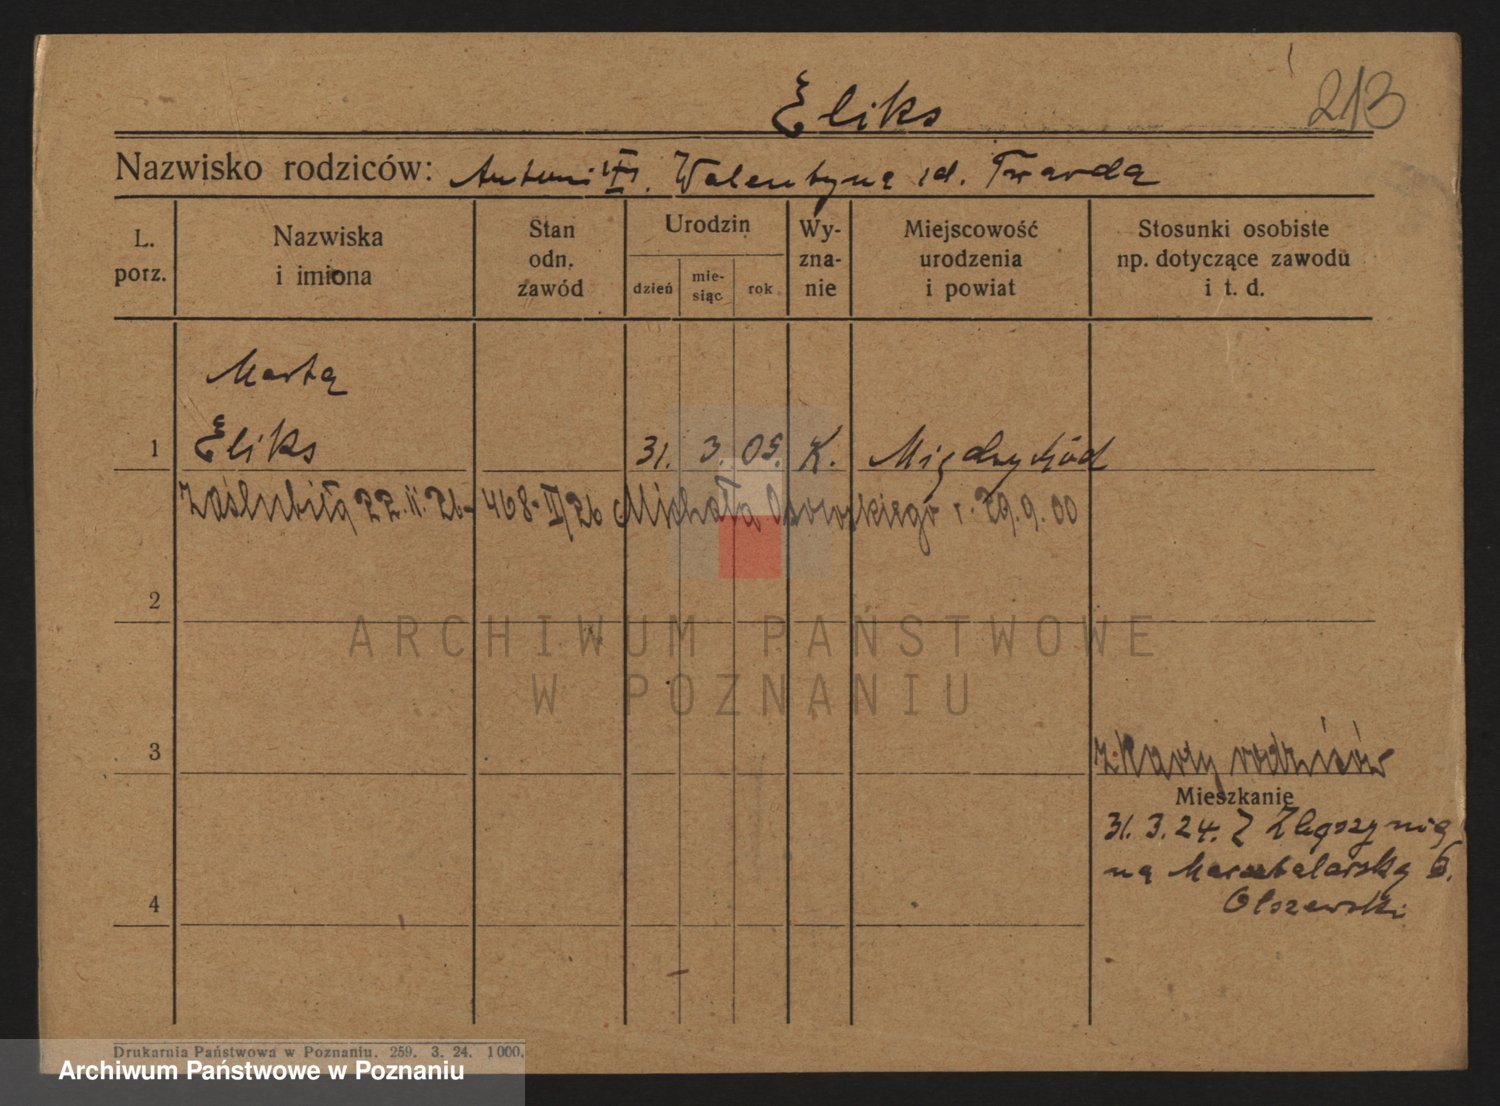 Eliks 213
Nazwisko rodziców: Antoni Walentyna Twarda
L. porz. Nazwiska i imiona Stan odn. zawód Urodzin dzień mie-siąc rok Wy-zna-nie Miejscowość urodzenia i powiat Stosunki osobiste np. dotyczące zawodu i t. d.
Marta
1 Eliks 31. 3. 05. K. Międzychód
zaślubiła 22.11.26 - 468-II/26 Michała r. 29.9.00
2
ARCHIWUM PAŃSTWOWE
W POZNANIU
3 z karty rodziców
Mieszkanie
31. 3. 24. Z
na 6.
4 Olszewski
Drukarnia Państwowa w Poznaniu. 259. 3. 24. 1000.
Archiwum Państwowe w Poznaniu